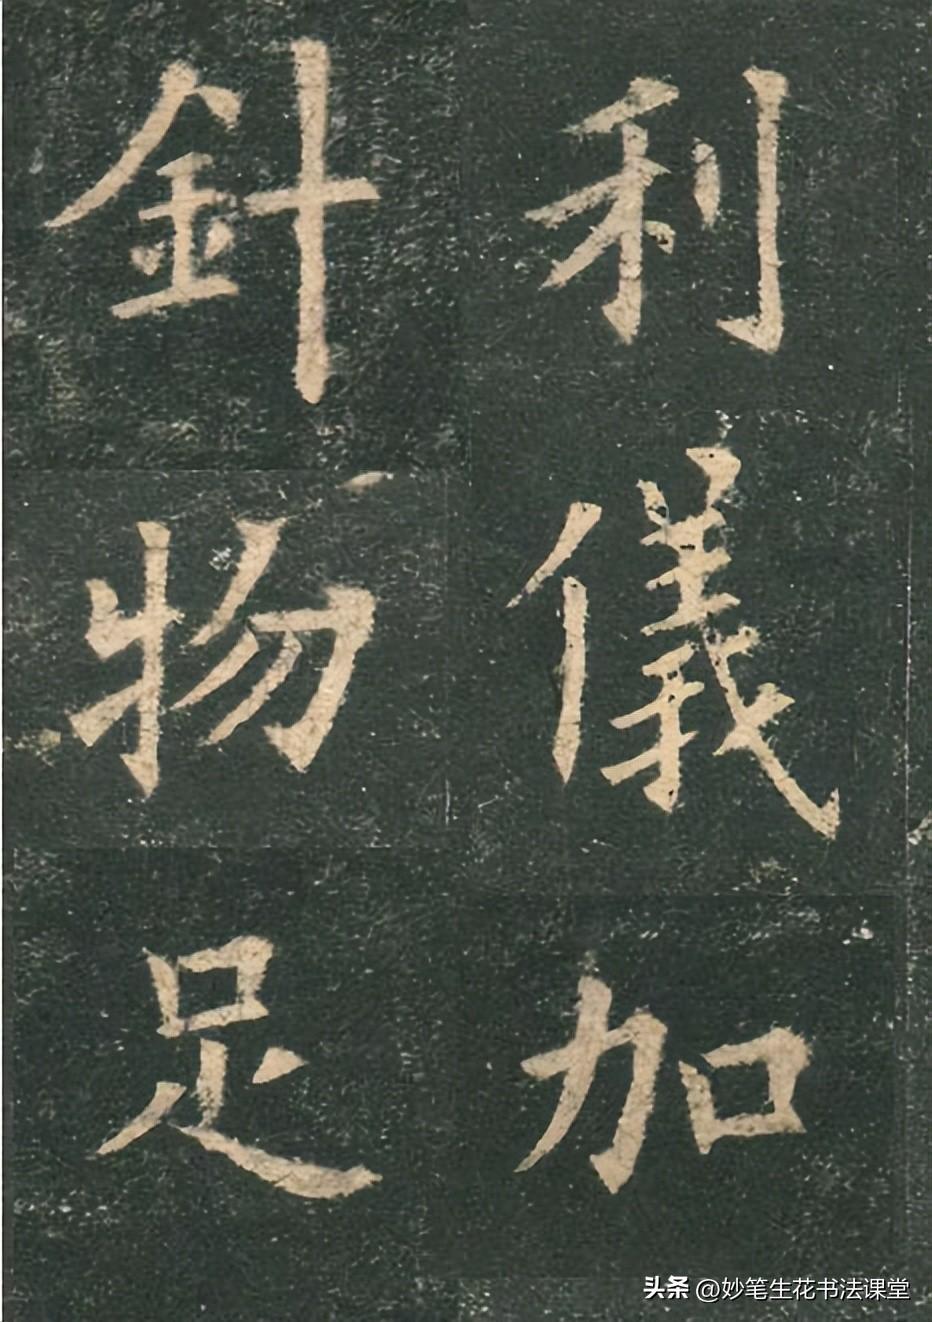 利儀加
針物足
头条 @妙笔生花书法课堂